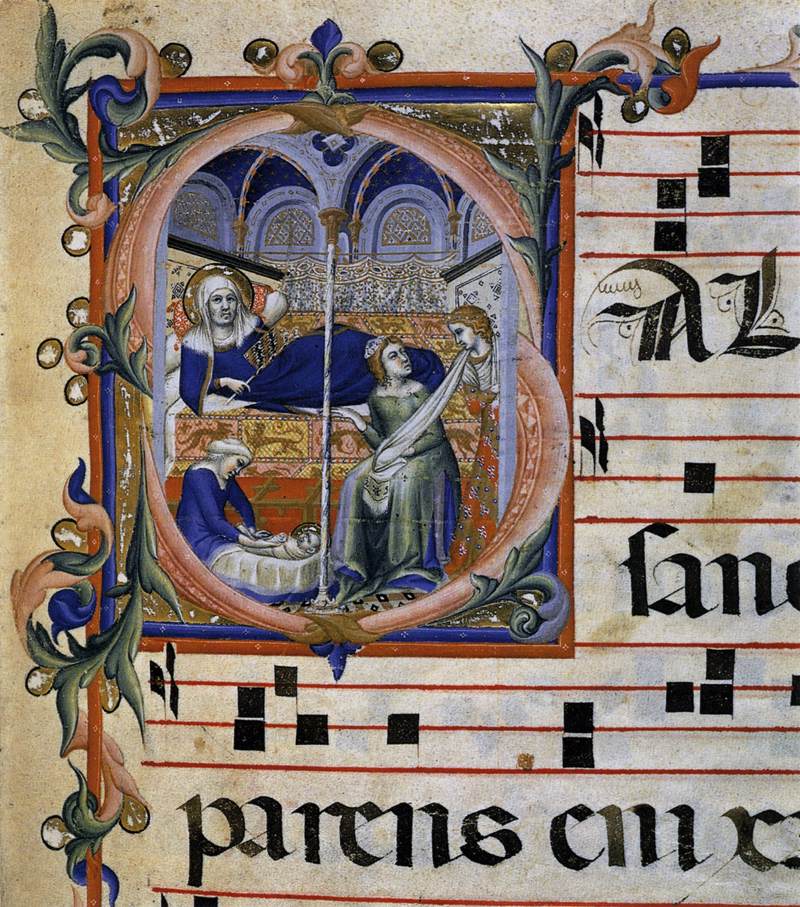 SAL
sanc
parens enix